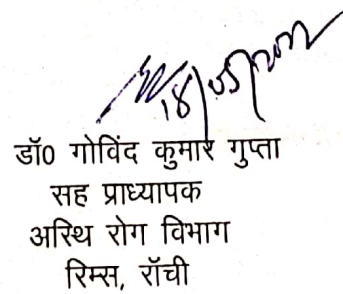 18/05/2022
डॉ0 गोविंद कुमार गुप्ता
सह प्राध्यापक
अस्थि रोग विभाग
रिम्स, रॉची